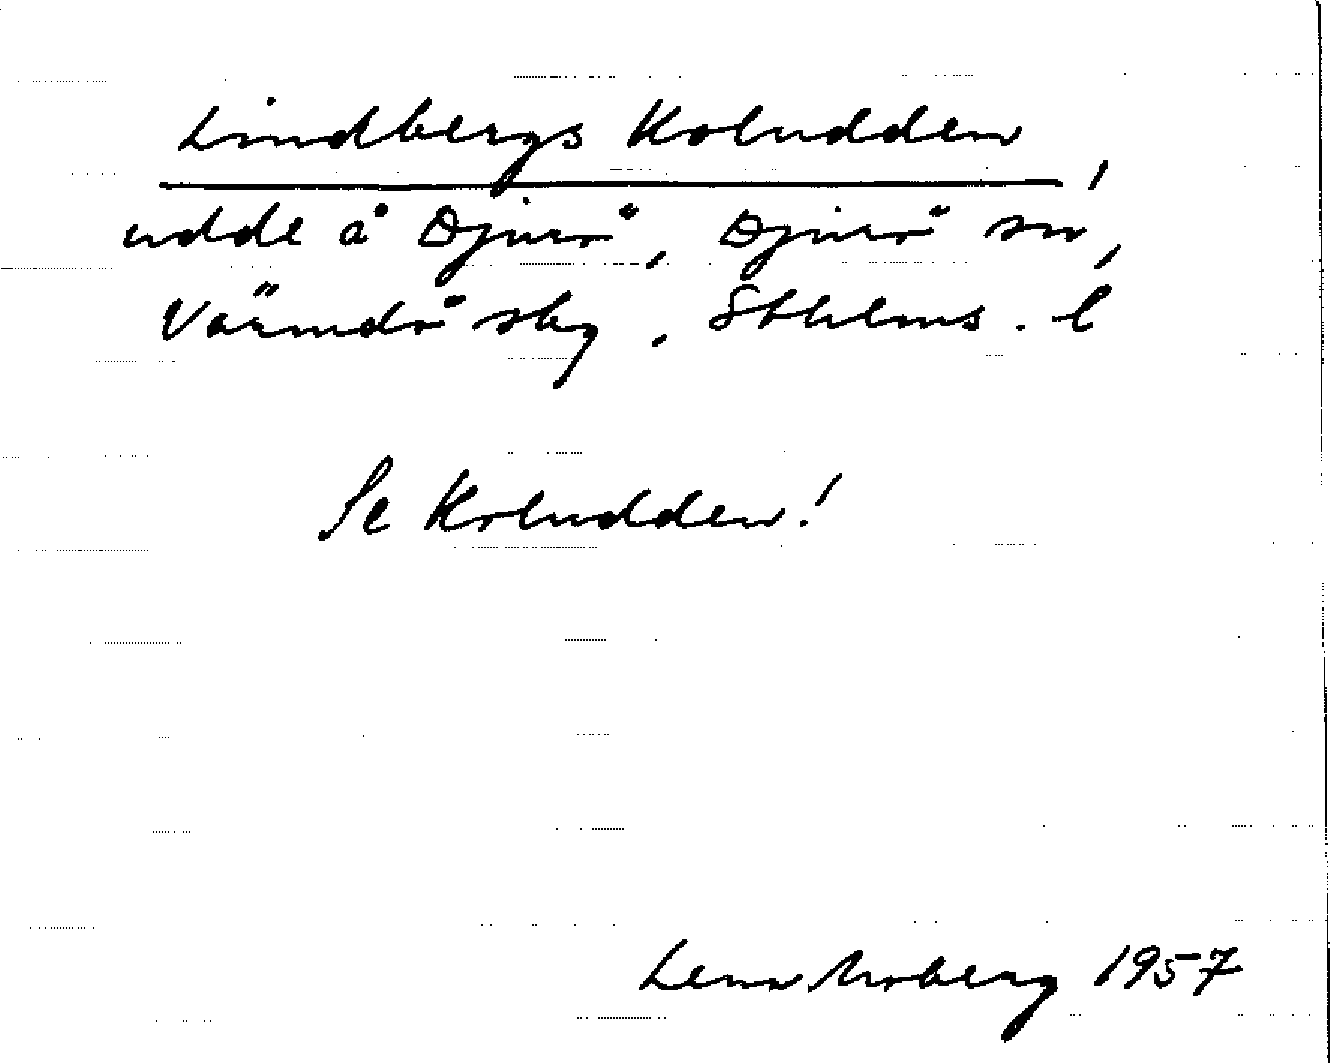 Lindbergs Koludden,
udde å Djurö, Djurö sn,
Värmdö skg, Sthlms. l
Se Koludden!
Lena Moberg 1957